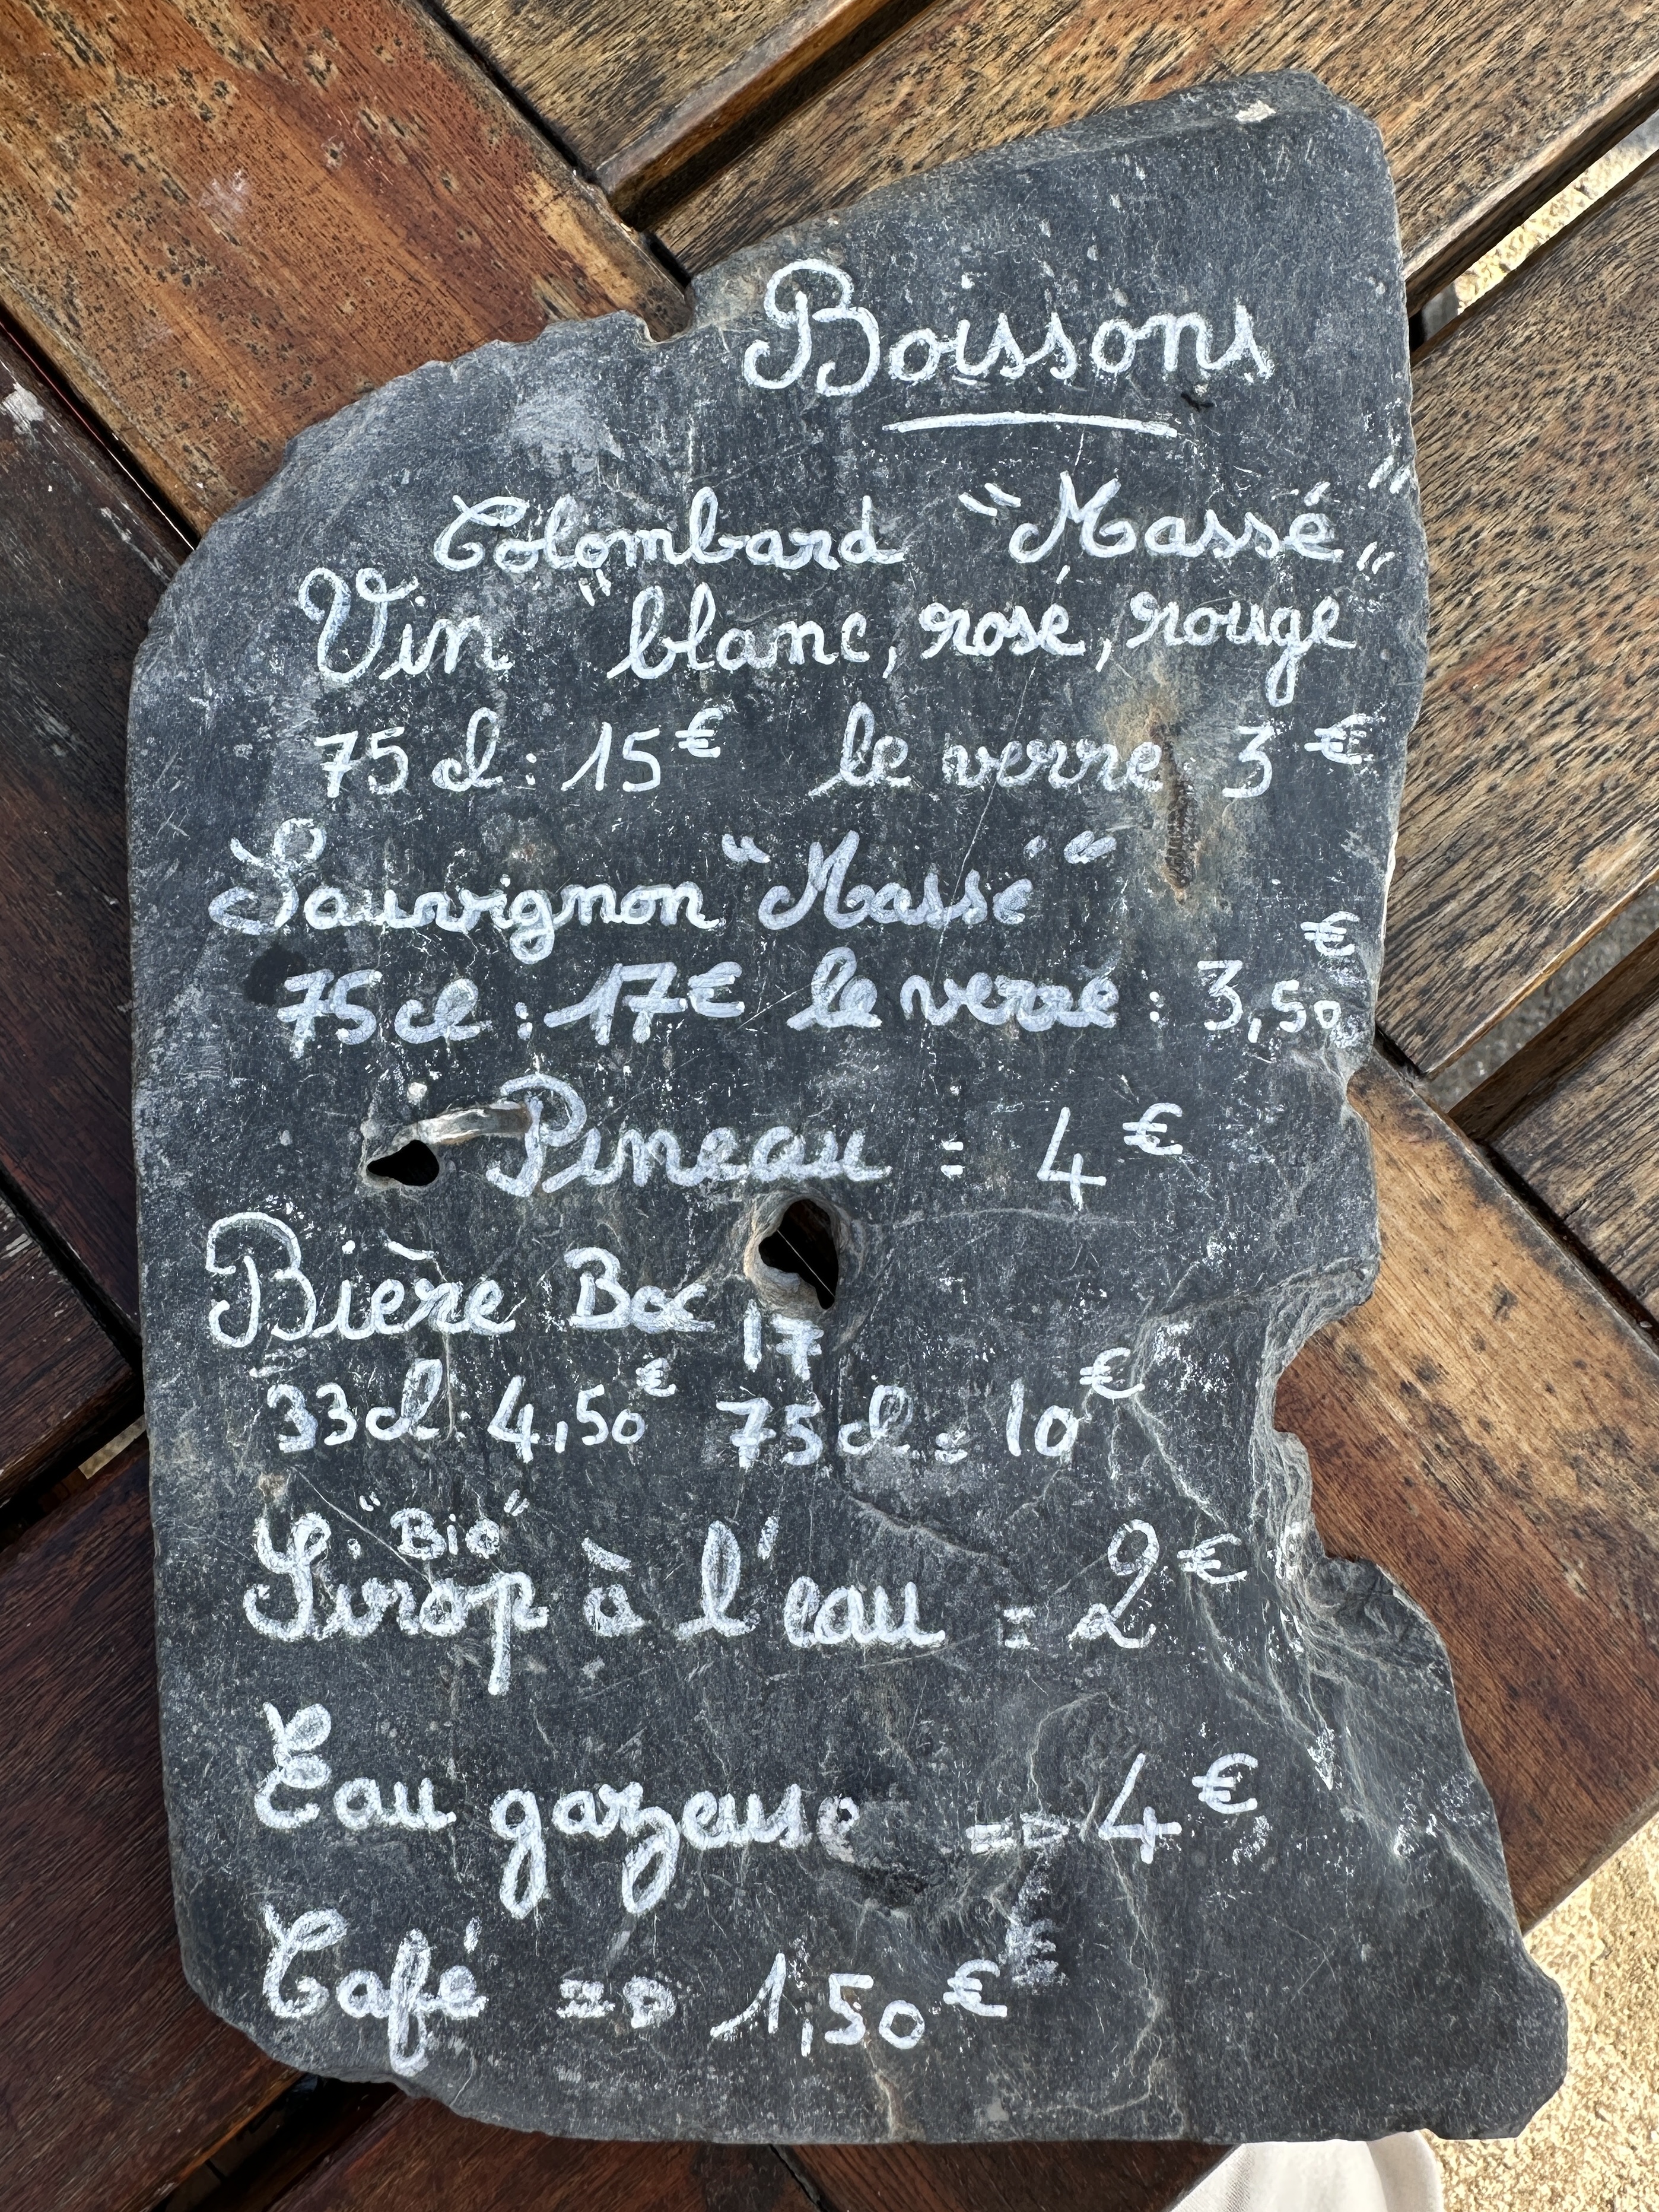 Boissons
Colombard "Massé"
Vin "blanc, rosé, rouge"
75 cl : 15€ le verre 3€
Sauvignon "Massé"
75 cl : 17€ le verre : 3,50€
Pineau = 4€
Bière Boc 17
33cl : 4,50€ 75 cl = 10€
"Bio"
Sirop à l'eau = 2€
Eau gazeuse => 4€
Café => 1,50€